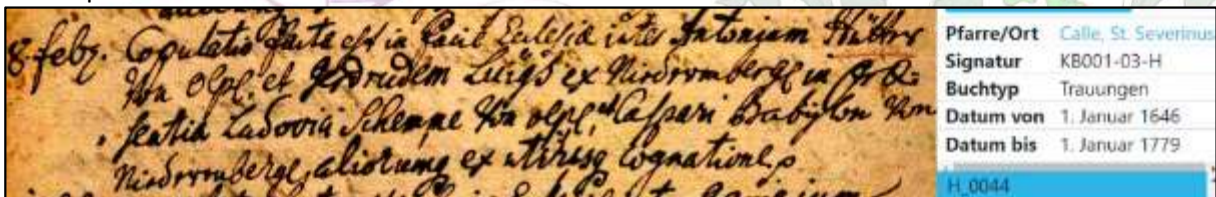 8 feb. Copulatio facta est in facie Ecclesiæ inter Antonium Hütter
Von Olpe, et Gedrudem Luigs ex Niederenberge in præ=
sentia Ludovici Schempe Von olpe, et Caspari Babylon Von
Niederenberge, aliorumq ex utriusq cognatione
Pfarre/Ort Calle, St. Severinus
Signatur KB001-03-H
Buchtyp Trauungen
Datum von 1. Januar 1646
Datum bis 1. Januar 1779
H_0044